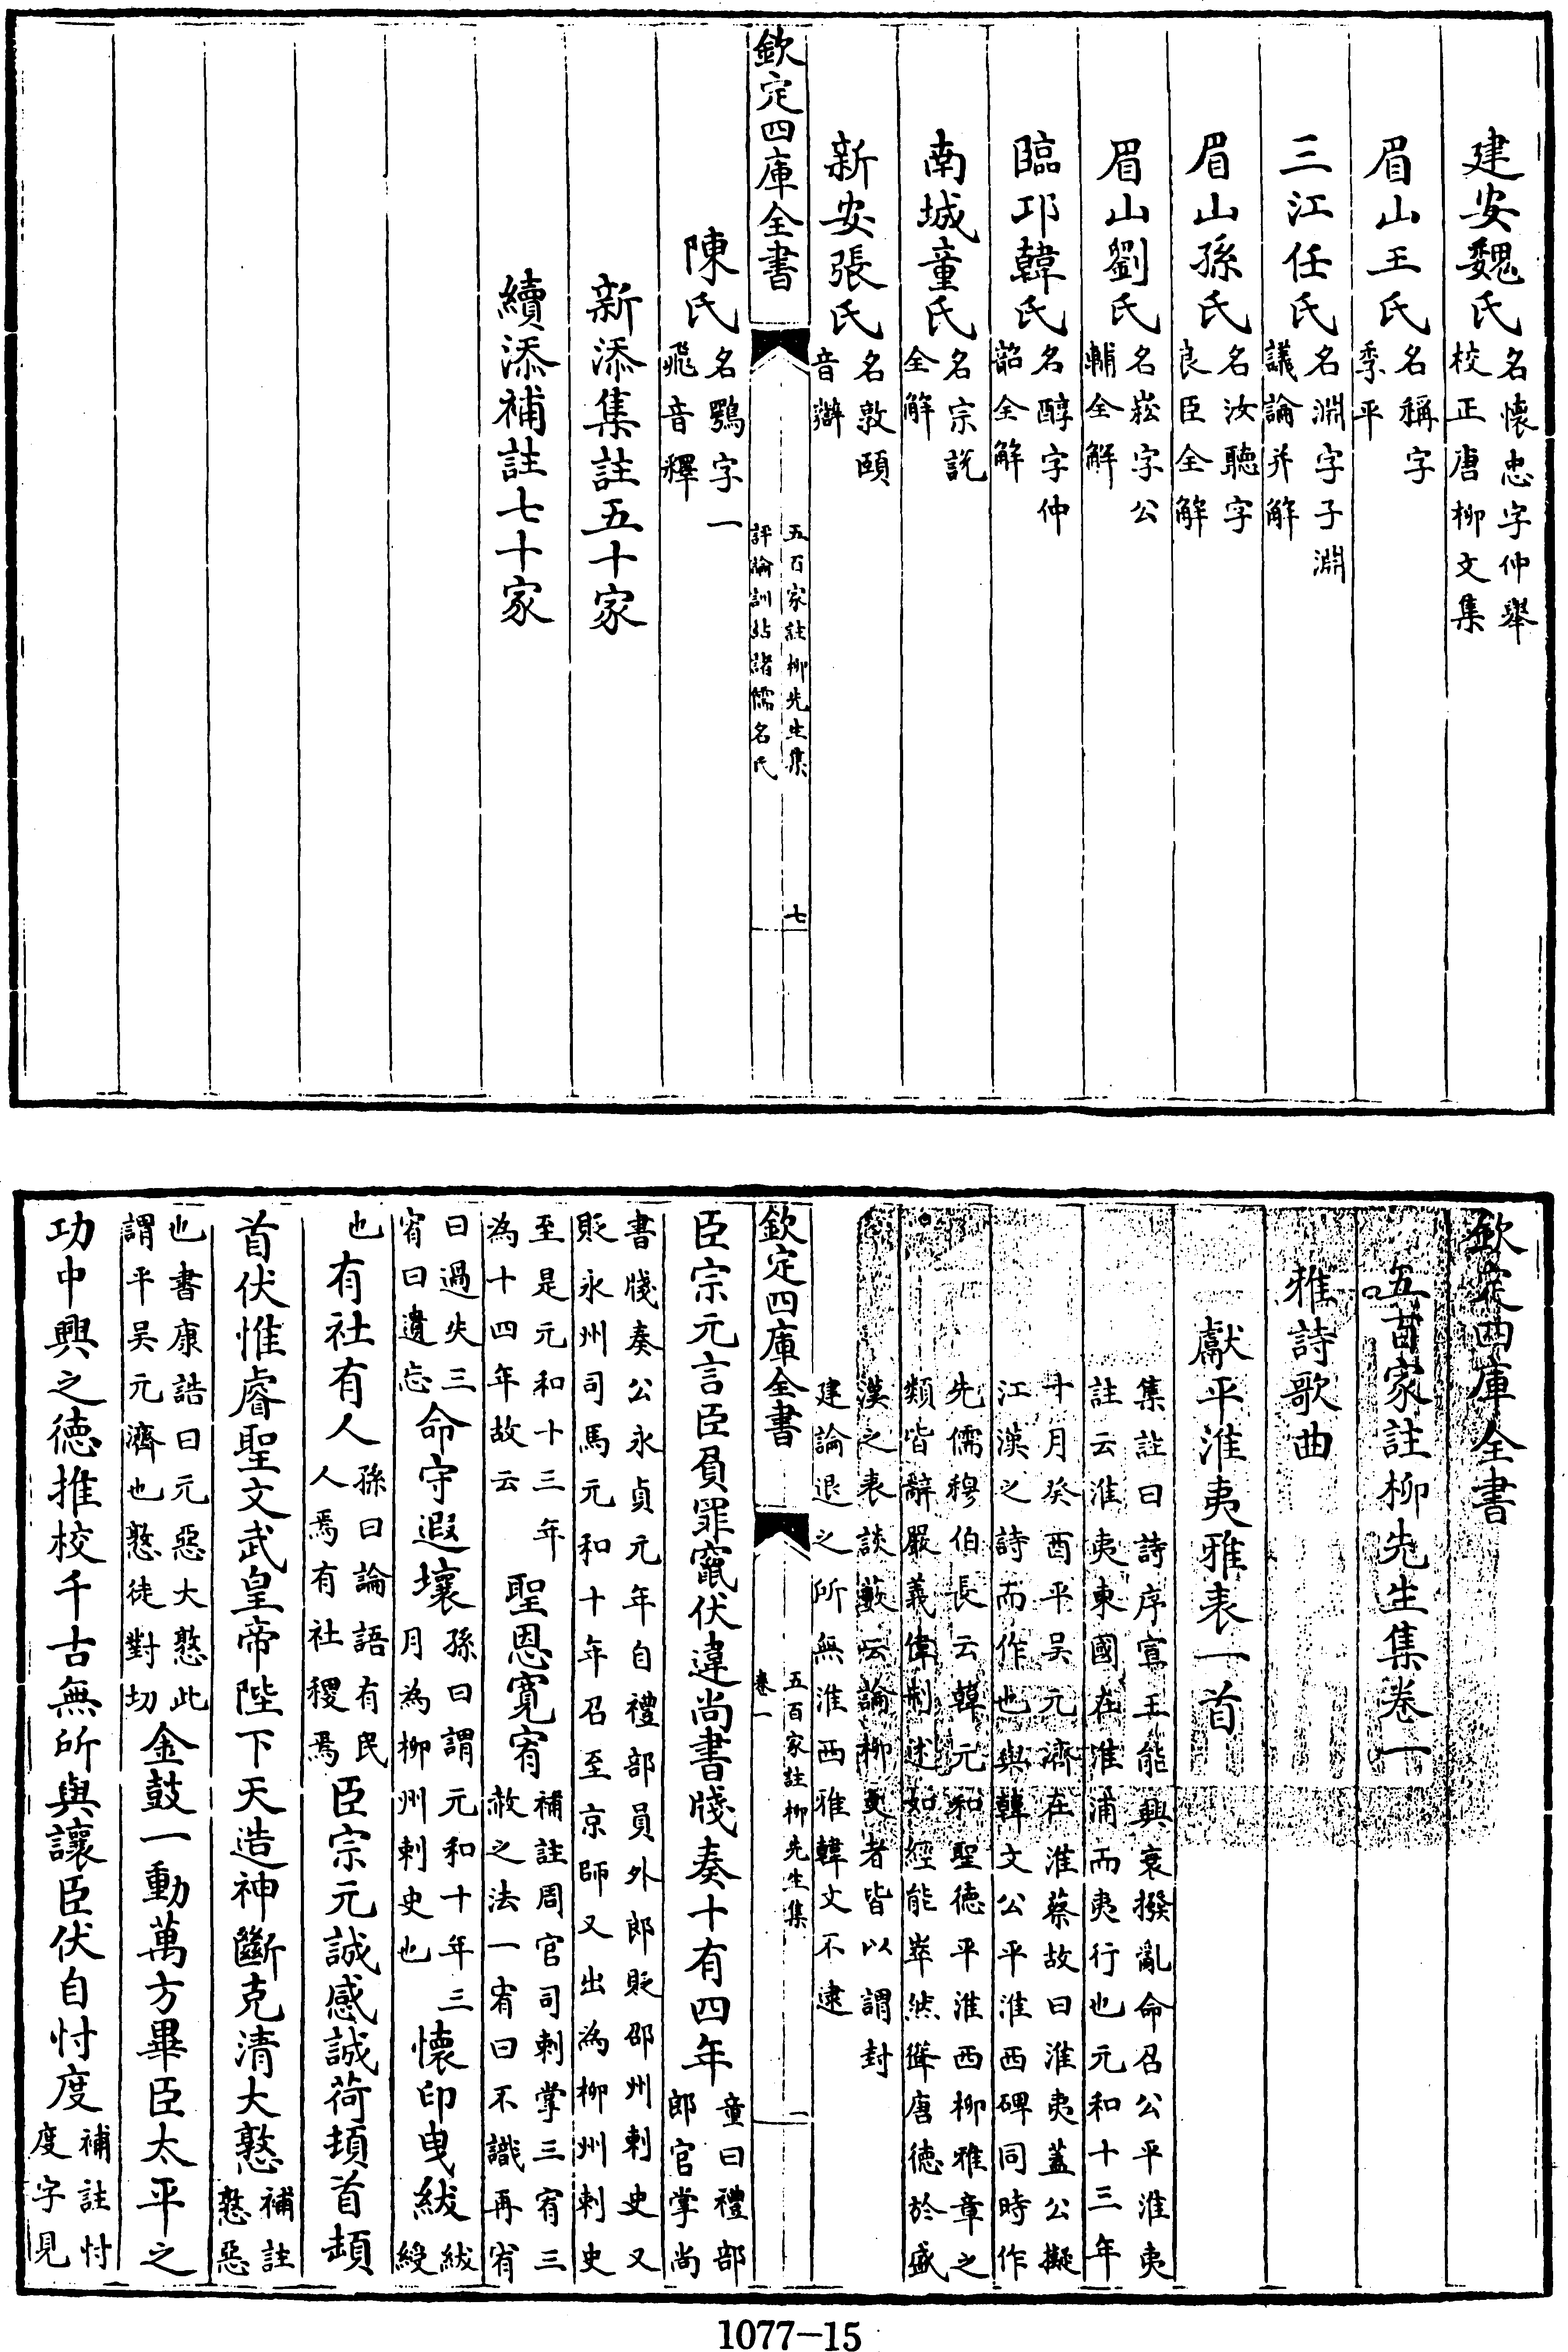 建安魏氏名懷忠字仲舉校正唐柳文集
眉山王氏名稱字季平
三江任氏名淵字子淵議論并解
眉山孫氏名汝聽字良臣全解
眉山劉氏名崧字公輔全解
臨邛韓氏名醇字仲韶全解
南城童氏名宗說全解
新安張氏名敦頤音辯
欽定四庫全書
五百家註柳先生集
評論訓詁諸儒名氏
七
陳氏名鶚字一飛音釋
新添集註五十家
續添補註七十家
欽定四庫全書
五百家註柳先生集卷一
雅詩歌曲
獻平淮夷雅表一首
集註曰詩序宣王能興衰撥亂命召公平淮夷
註云淮夷東國在淮浦而夷行也元和十三年
十月癸酉平吳元濟在淮蔡故曰淮夷蓋公擬
江漢之詩而作也與韓文公平淮西碑同時作
先儒穆伯長云韓元和聖德平淮西柳雅章之
類皆辭嚴義偉制述如經能崒然聳唐德於盛
漢之表談藪云論柳文者皆以謂封
建論退之所無淮西雅韓文不逮
欽定四庫全書
五百家註柳先生集
卷一
一
臣宗元言臣負罪竄伏違尚書牋奏十有四年童曰禮部郎官掌尚
書牋奏公永貞元年自禮部員外郎貶邵州刺史又
貶永州司馬元和十年召至京師又出為柳州刺史
至是元和十三年為十四年故云聖恩寬宥補註周官司刺掌三宥三赦之法一宥曰不識再宥
曰過失三宥曰遺忘命守遐壤孫曰謂元和十年三月為柳州刺史也懷印曳紱紱綬
也有社有人孫曰論語有民人焉有社稷焉臣宗元誠感誠荷頓首頓
首伏惟睿聖文武皇帝陛下天造神斷克清大憝補註憝惡
也書康誥曰元惡大憝此謂平吳元濟也憝徒對切金鼓一動萬方畢臣太平之
功中興之德推校千古無所與讓臣伏自忖度補註忖度字見
1077-15